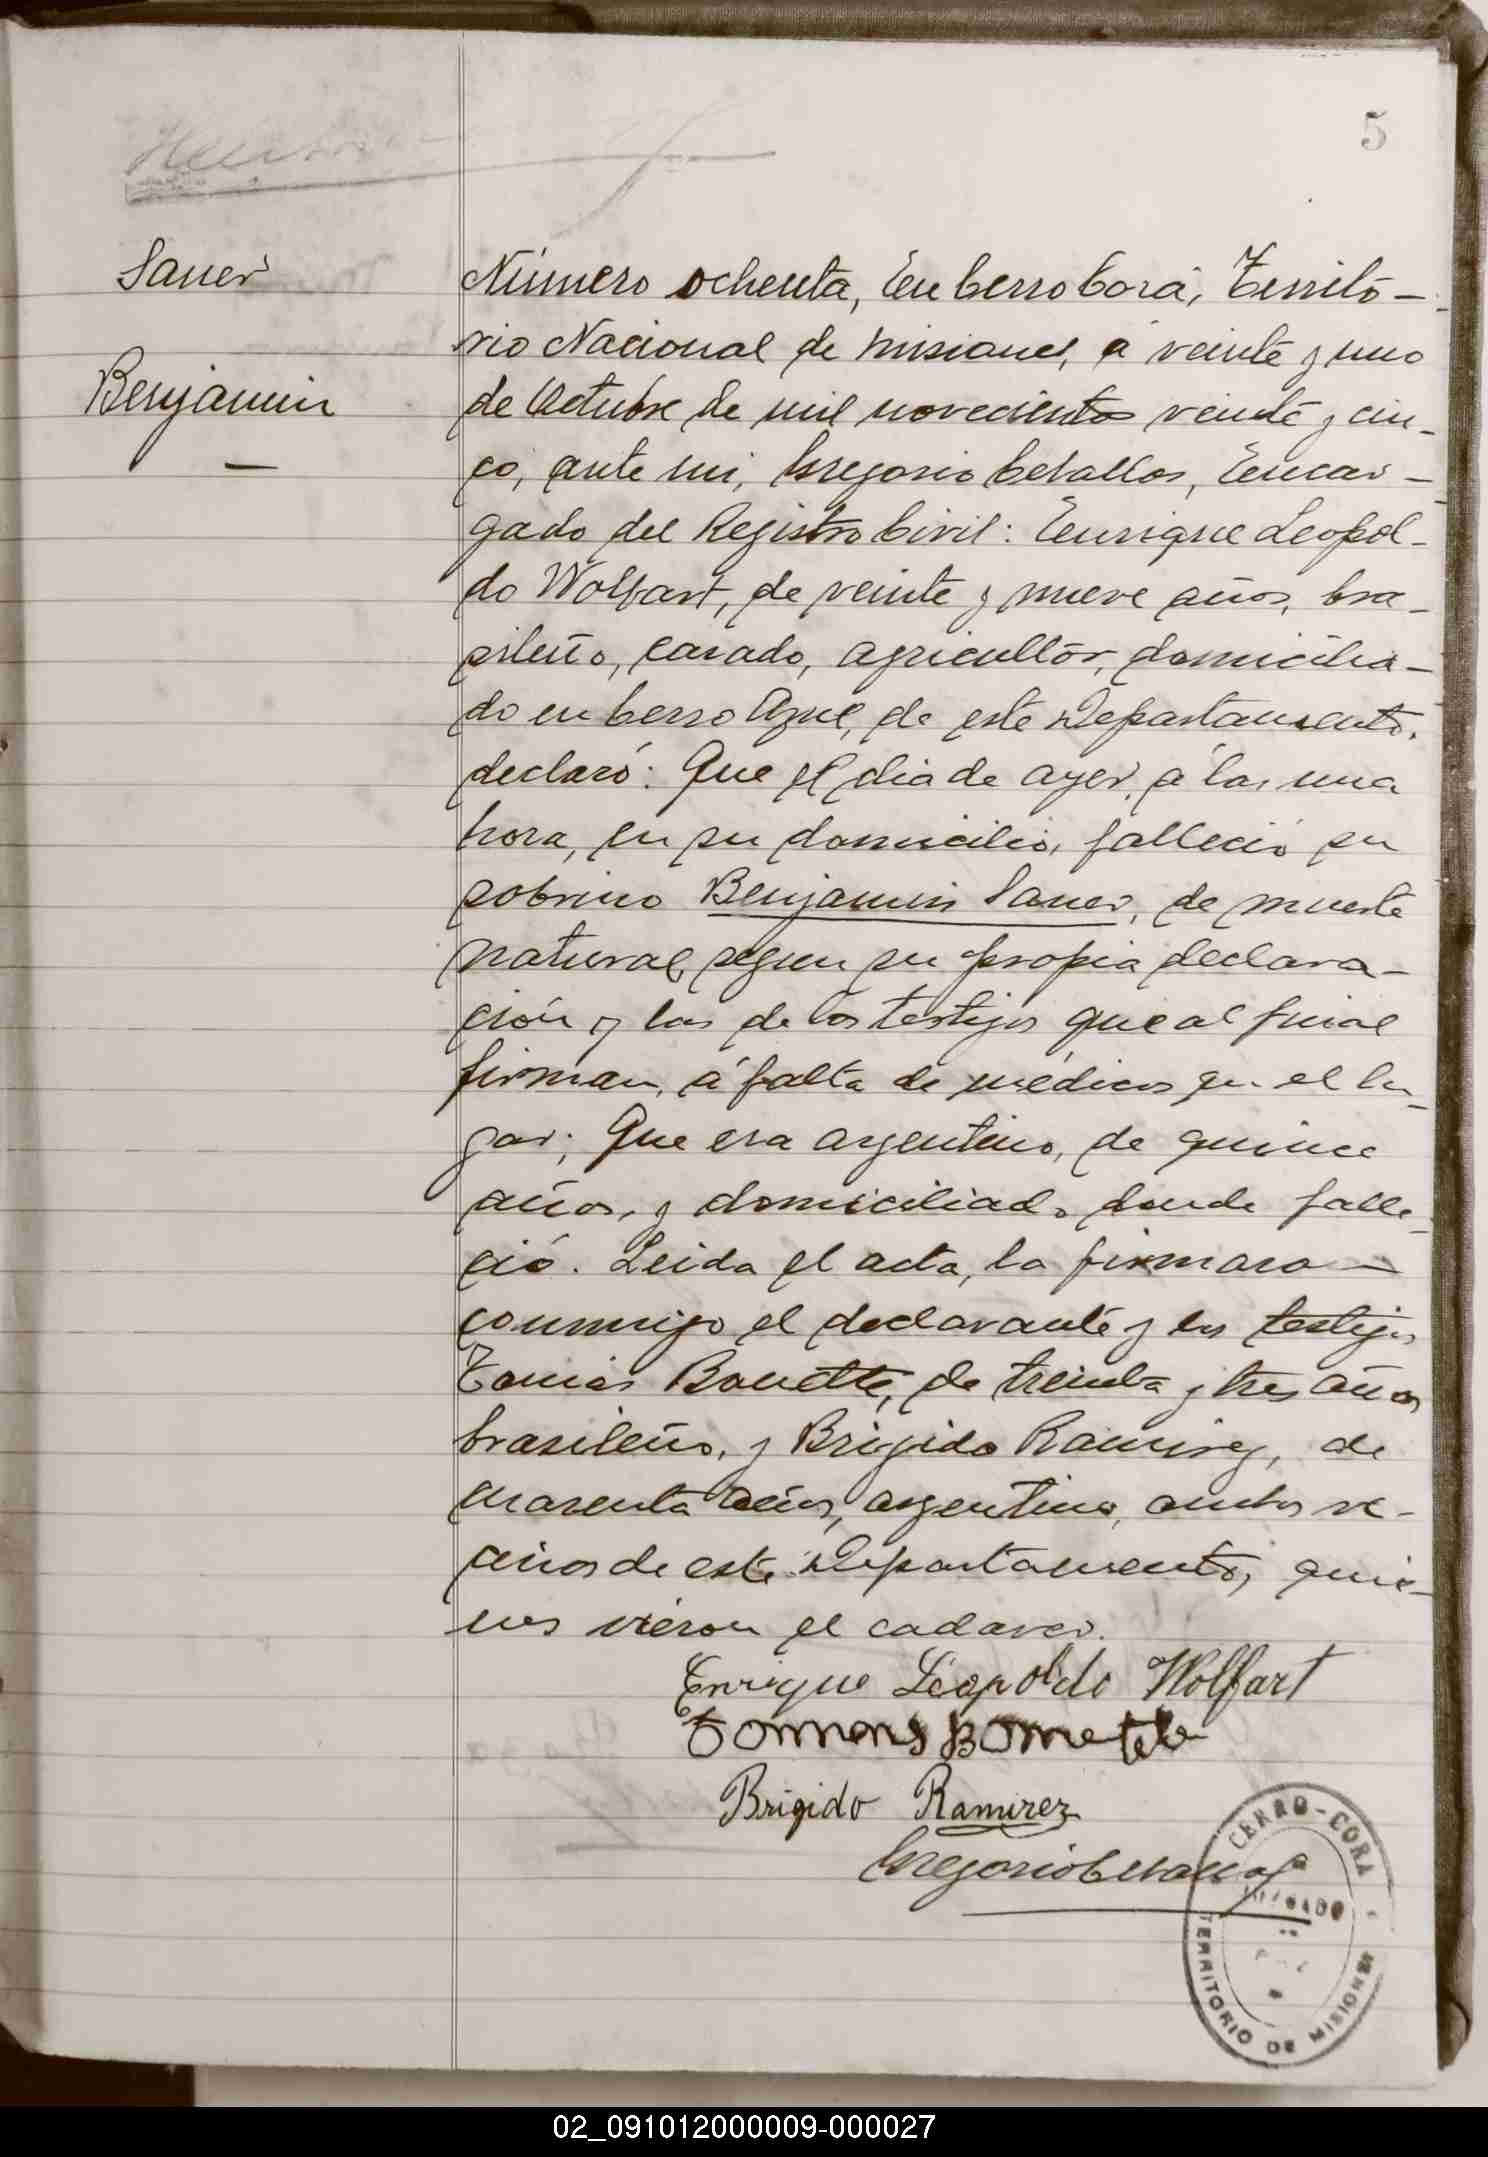 5
Sauer
Benjamin
Número ochenta, En Cerro Corá, Territó-
rio Nacional de Misiones, á veinte y uno
de Octubre de mil novecientos veinte y cin-
co, ante mi, Gregorio Cevallos, Encar-
gado del Registro Civil: Enrique Leopol-
do Wolfart, de veinte y nueve años, bra-
sileño, casado, agricultor, domicilia-
do en Cerro Azul, de este Departamento,
declaró: Que el dia de ayer, á las una
hora, en su domicilio, falleció su
sobrino Benjamin Sauer, de muerte
natural, segun su propia declara-
ción y las de los testigos que al final
firman, á falta de médicos en el lu-
gar; Que era argentino, de quince
años, y domiciliado donde falle-
ció. Leida el acta, la firmaro-
conmigo el declarante y los testigos
Tomás Bonette, de treinta y tres años
brasileño, y Brigido Ramirez, de
cuarenta años, argentino, ambos ve-
cinos de este Departamento, quie-
nes vieron el cadaver.
Enrique Leopoldo Wolfart
Brigido Ramirez
Gregorio Cevallos
CERRO-CORA
JUZGADO
TERRITORIO DE MISIONES
02_091012000009-000027